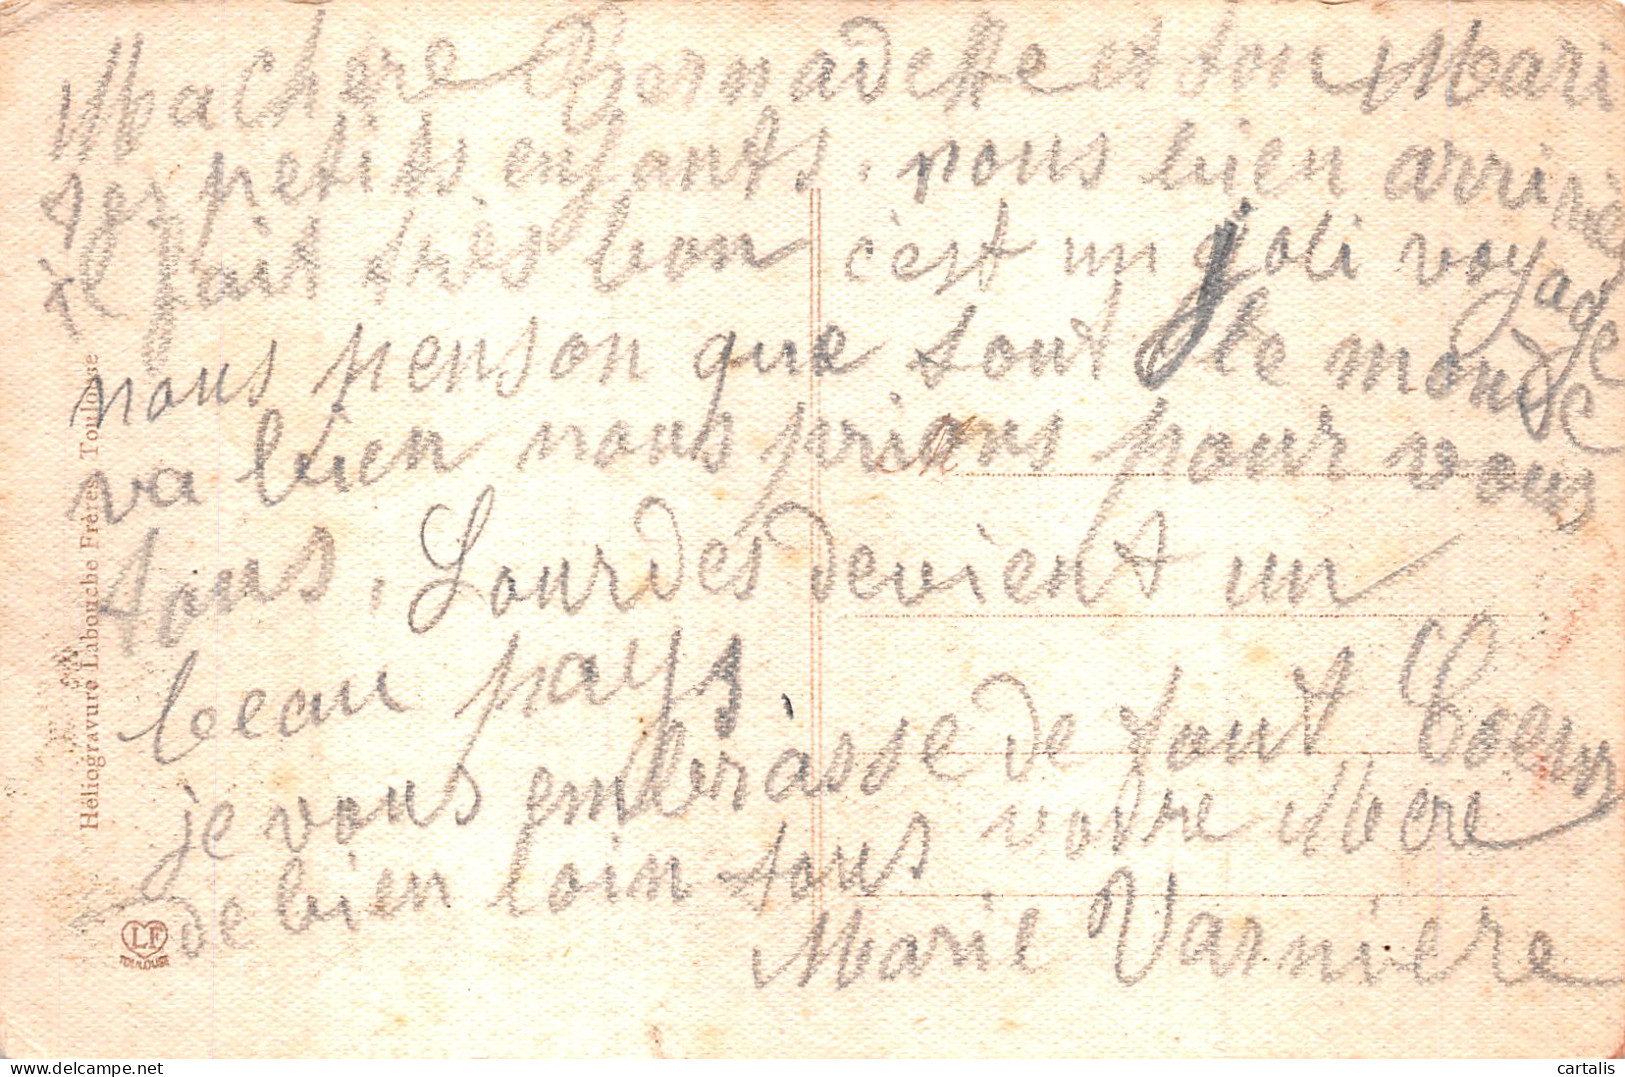 Ma chère Bernadette et ton Mari
tes petits enfants. nous bien arrivés
il fait très bon c'est un joli voyage
nous penson que tout le monde
va bien nous prions pour vous
tous, Lourdes devient un
beau pays
je vous embrasse de tout Coeur
de bien loin tous votre Mère
Marie Varnière
Héliogravure Labouche Frères Toulouse
LF
TOULOUSE
cartalis
delcampe.net